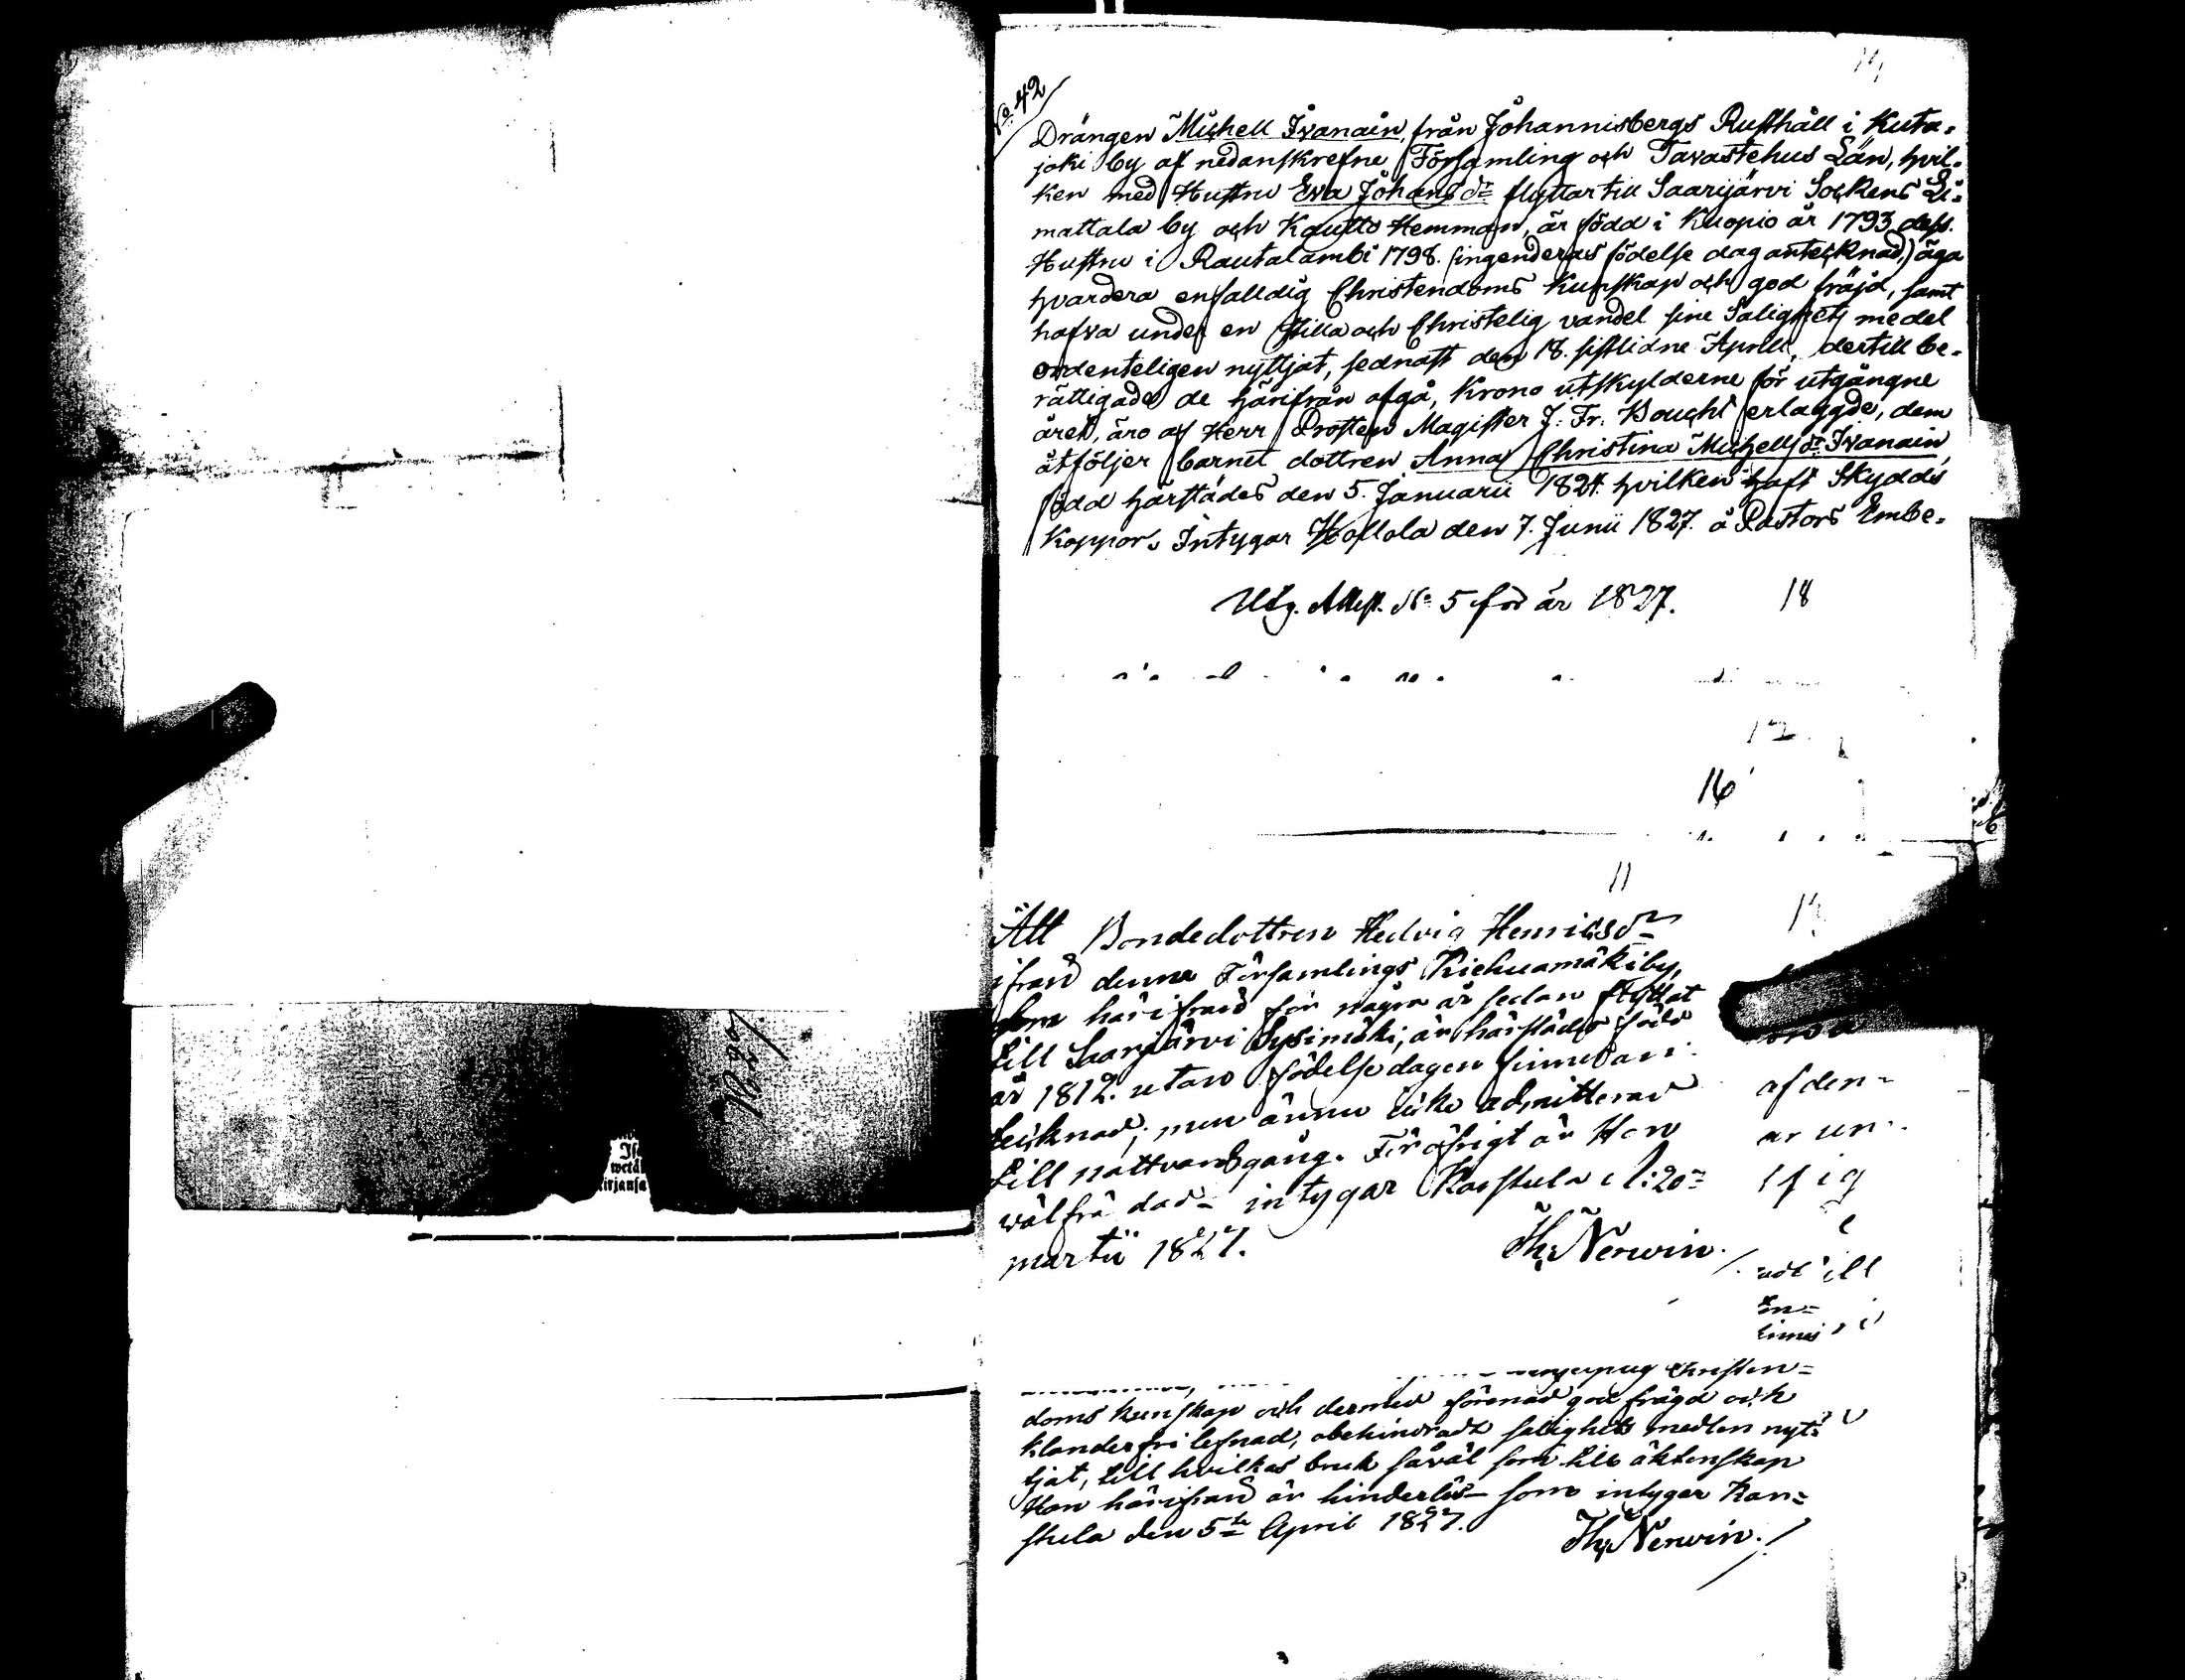 No. 42
Drängen Michell Ivanain, från Johannisbergs Rusthåll i Kuta-
joki by af nedanskrefne Församling och Tavastehus Län, hvil-
ken med Hustru Eva Johansdr flyttar till Saarijärvi Sockens Li-
mattala by och Kautto Hemman, är född i Kuopio år 1793, dess
Hustru i Rautalambi 1798. (ingenderas födelse dag antecknad,) äga
hvardera enfalldig Christendoms Kunskap och god fräjd, samt
hafva under en stilla och Christelig vandel sine Salighets medel
ordenteligen nyttjat, sednast den 18. sistlidne Aprill, dertill be-
rättigade de härifrån afgå, Krono utskylderne för utgångne
året, äro af Herr Prosten Magister J. Fr. Boucht erlaggde, dem
åtföljer barnet dottren Anna Christina Michellsdr Ivanain,
född härstädes den 5. Januarii 1824. hvilken haft Skydds
Koppor. Intygar Hollola den 7. Junii 1827. å Pastors Embe-
Utg. Attest. No 5 för år 1827.
18
16
11
Att Bondedottren Hedvig Henricsdr
ifrån denna Församlings Kiehuamäki by,
som härifrån för några år sedan flyttat
till Saarijärvi Sysimäki, är härstädes född
år 1812. utan födelsedagen finnes an-
tecknad, men ännu icke admitterad
till nattvardsgång. För öfrigt är Hon
välfrä dad- intygar Karstula d. 20=
martii 1827.
Th. Nerwin.
af den-
Christen=
doms kunskap och dermed förenad god frägd och
klanderfri lefnad, obehindradt salighets medlen nyt-
tjat, till hvilkas bruk såväl som till äktenskap
Hon härifrån är hinderlös- som intygar Kar=
stula den 5te April 1827.
Th. Nerwin.
No 39